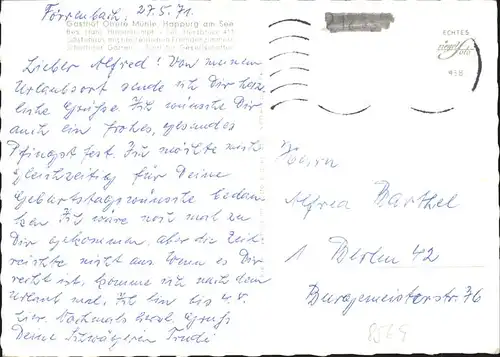 Förrenbach, 27.5.71.
Gasthof Obere Mühle, Happurg am See
Bes. Hans
Lieber Alfred! Von meinem
Urlaubsort sende ich Dir herz-
liche Grüße. Ich wünsche Dir
auch ein frohes, gesundes
Pfingstfest. Ich möchte mich
gleichzeitig für Deine
Geburtstagswünsche bedan-
ken. Ich wäre noch mal zu
Dir gekommen, aber die Zeit
reichte nicht aus. Wenn es Dir
recht ist, komme ich nach dem
Urlaub mal. Ich bin bis 4.V.
hier. Nochmals herzl. Gruß
Deine Schwägerin Trudi
ECHTES
foto
938
Herrn
Alfred Barthel
1 Berlin 42
Burgemeisterstr. 36
8569